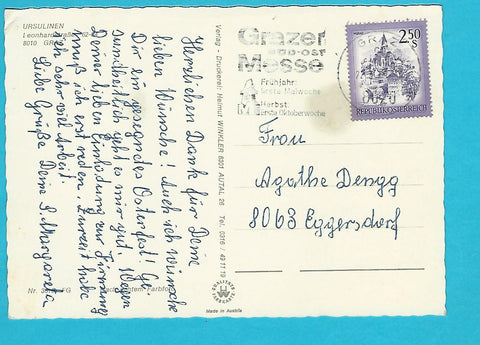 URSULINEN
Leonhardstraße 62
8010 GRAZ
Herzlichen Dank für Deine
lieben Wünsche! Auch ich wünsche
Dir ein gesegnetes Osterfest! Ge-
sundheitlich geht es mir gut. Wegen
Deiner lieben Einladung zur Firmung
muß ich erst reden, zurzeit habe
ich sehr viel Arbeit!
Liebe Grüße Deine S. Margareta
Verlag - Druckerei: Helmut WINKLER 8301 AUTAL 26 Tel. 0316 / 49 11 19
Grazer
Süd-Ost
Messe
Frühjahr:
erste Maiwoche
Herbst:
erste Oktoberwoche
2.50
S
REPUBLIK ÖSTERREICH
Frau
Agathe Dengg
8063 Eggersdorf
Nr.
Farbfoto
Made in Austria